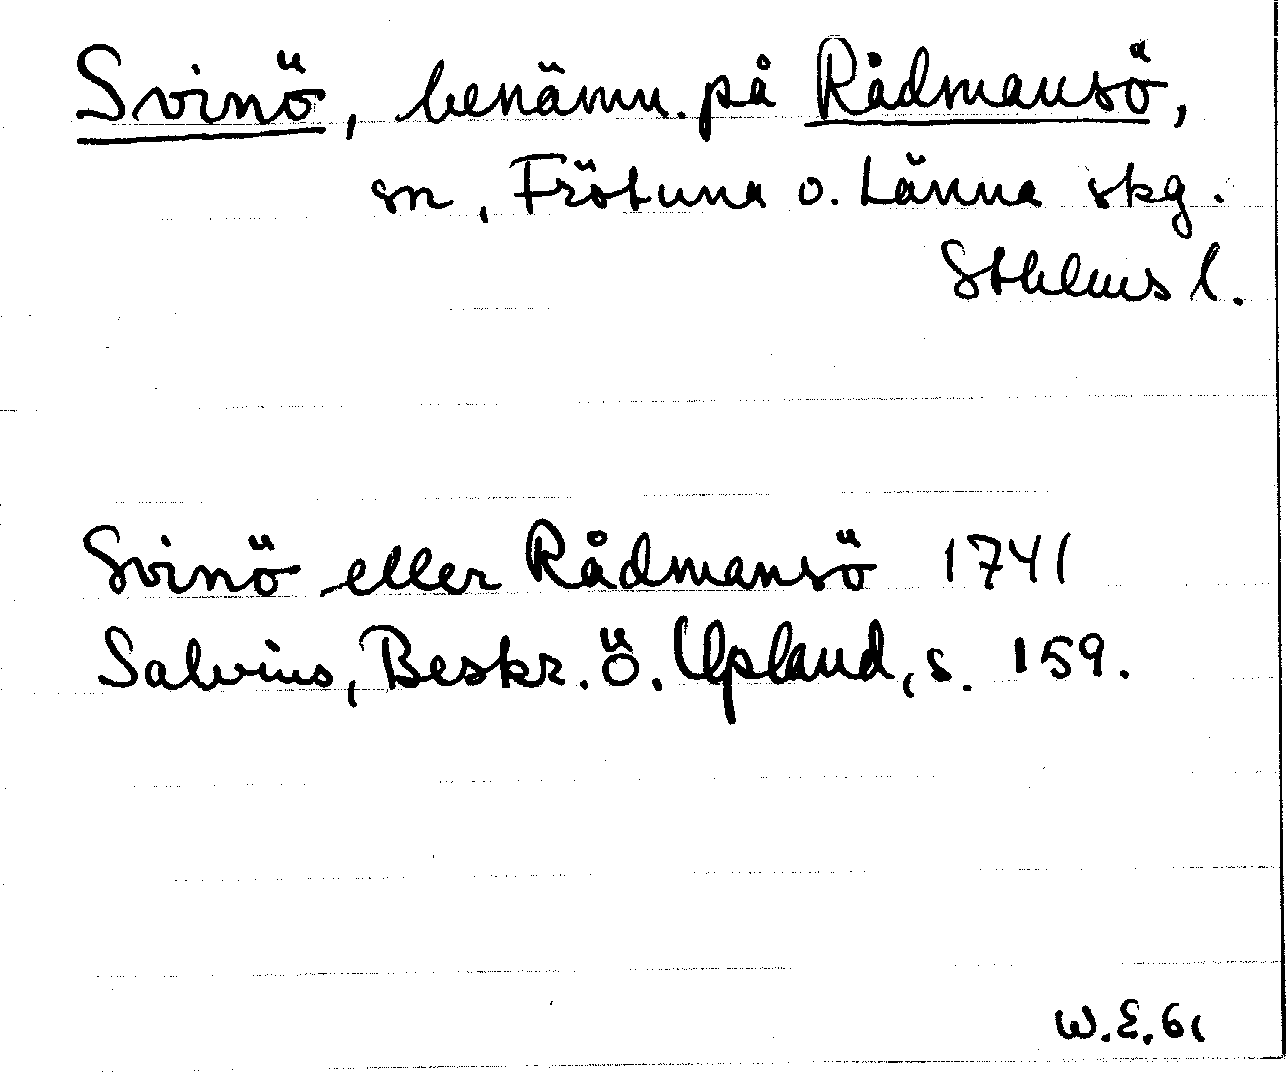 Svinö, benämn. på Rådmansö,
sn, Frötuna o. Länna skg.
Sthlms l.
Svinö eller Rådmansö 1741
Salvius, Beskr. Ö. Upland, s. 159.
W.E. 61